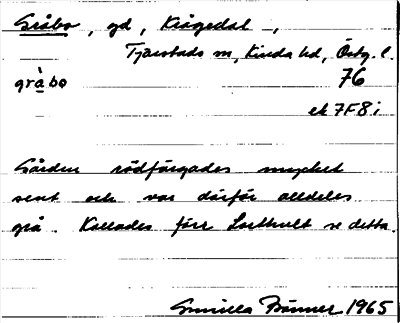 Gråbo, gd, Krågedal -,
Tjärstads sn, Kinda hd, Östg. l.
gràbo 76
ek 7F8i
Gården rödfärgades mycket
sent och var därför alldeles
grå. Kallades förr Lorthult se detta.
Gunilla Bönner 1965